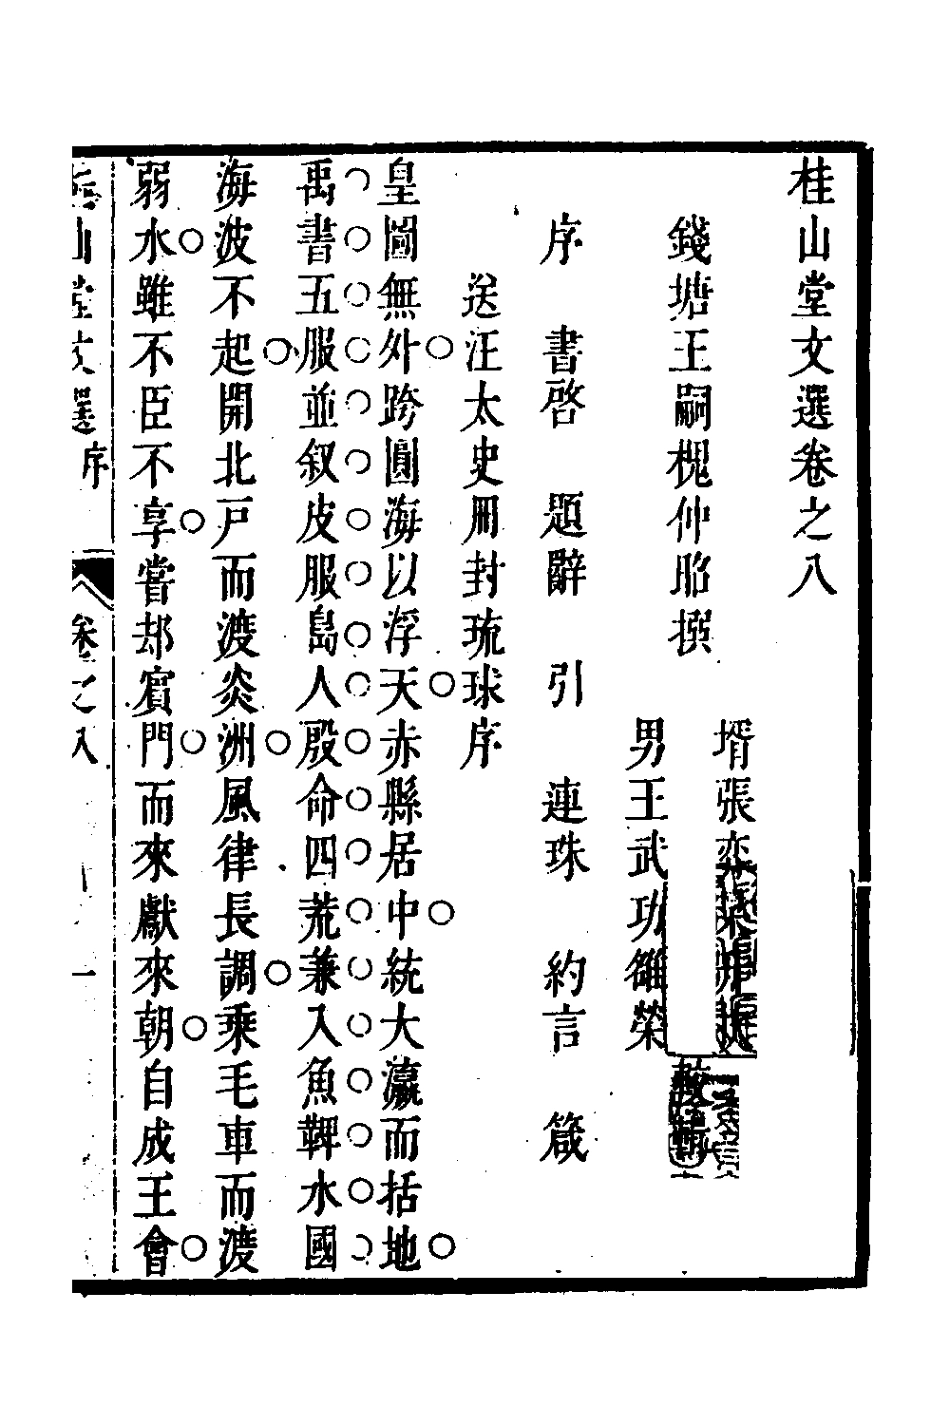 桂山堂文選卷之八
錢塘王嗣槐仲昭撰
壻張奕
男王武功雒榮
序 書啓 題辭 引 連珠 約言 箴
送汪太史冊封琉球序
皇圖無外跨圓海以浮天赤縣居中統大瀛而括地
禹書五服並叙皮服島人殷命四荒兼入魚鞞水國
海波不起開北戸而渡炎洲風律長調乘毛車而渡
弱水雖不臣不享嘗却賓門而來獻來朝自成王會
桂山堂文選 序 卷之八 一